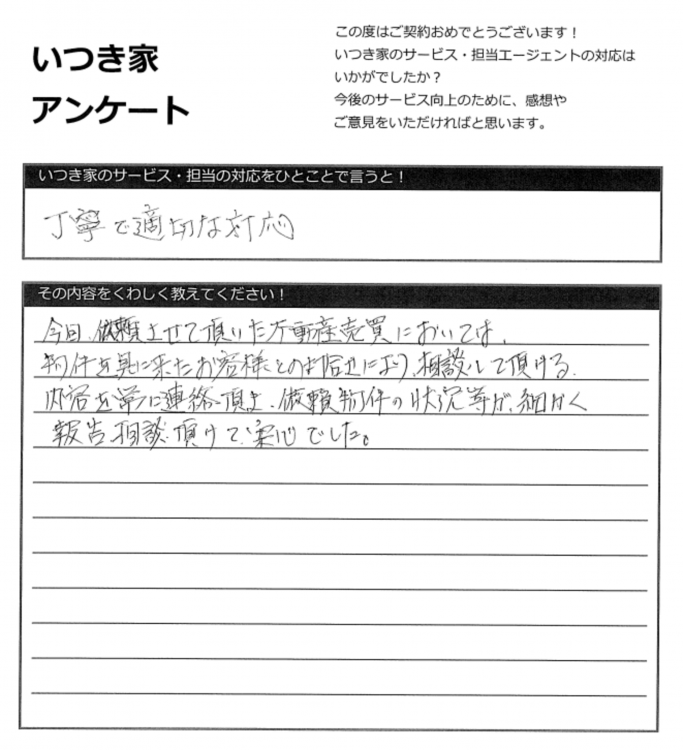 いつき家
アンケート
この度はご契約おめでとうございます！
いつき家のサービス・担当エージェントの対応は
いかがでしたか？
今後のサービス向上のために、感想や
ご意見をいただければと思います。
いつき家のサービス・担当の対応をひとことで言うと！
丁寧で適切な対応
その内容をくわしく教えてください！
今回、依頼させて頂いた不動産売買においては、
物件を見に来たお客様との により、相談して頂ける、
内容を常に連絡 頂き、依頼物件の状況等が、細かく
報告 相談 頂けて、安心でした。